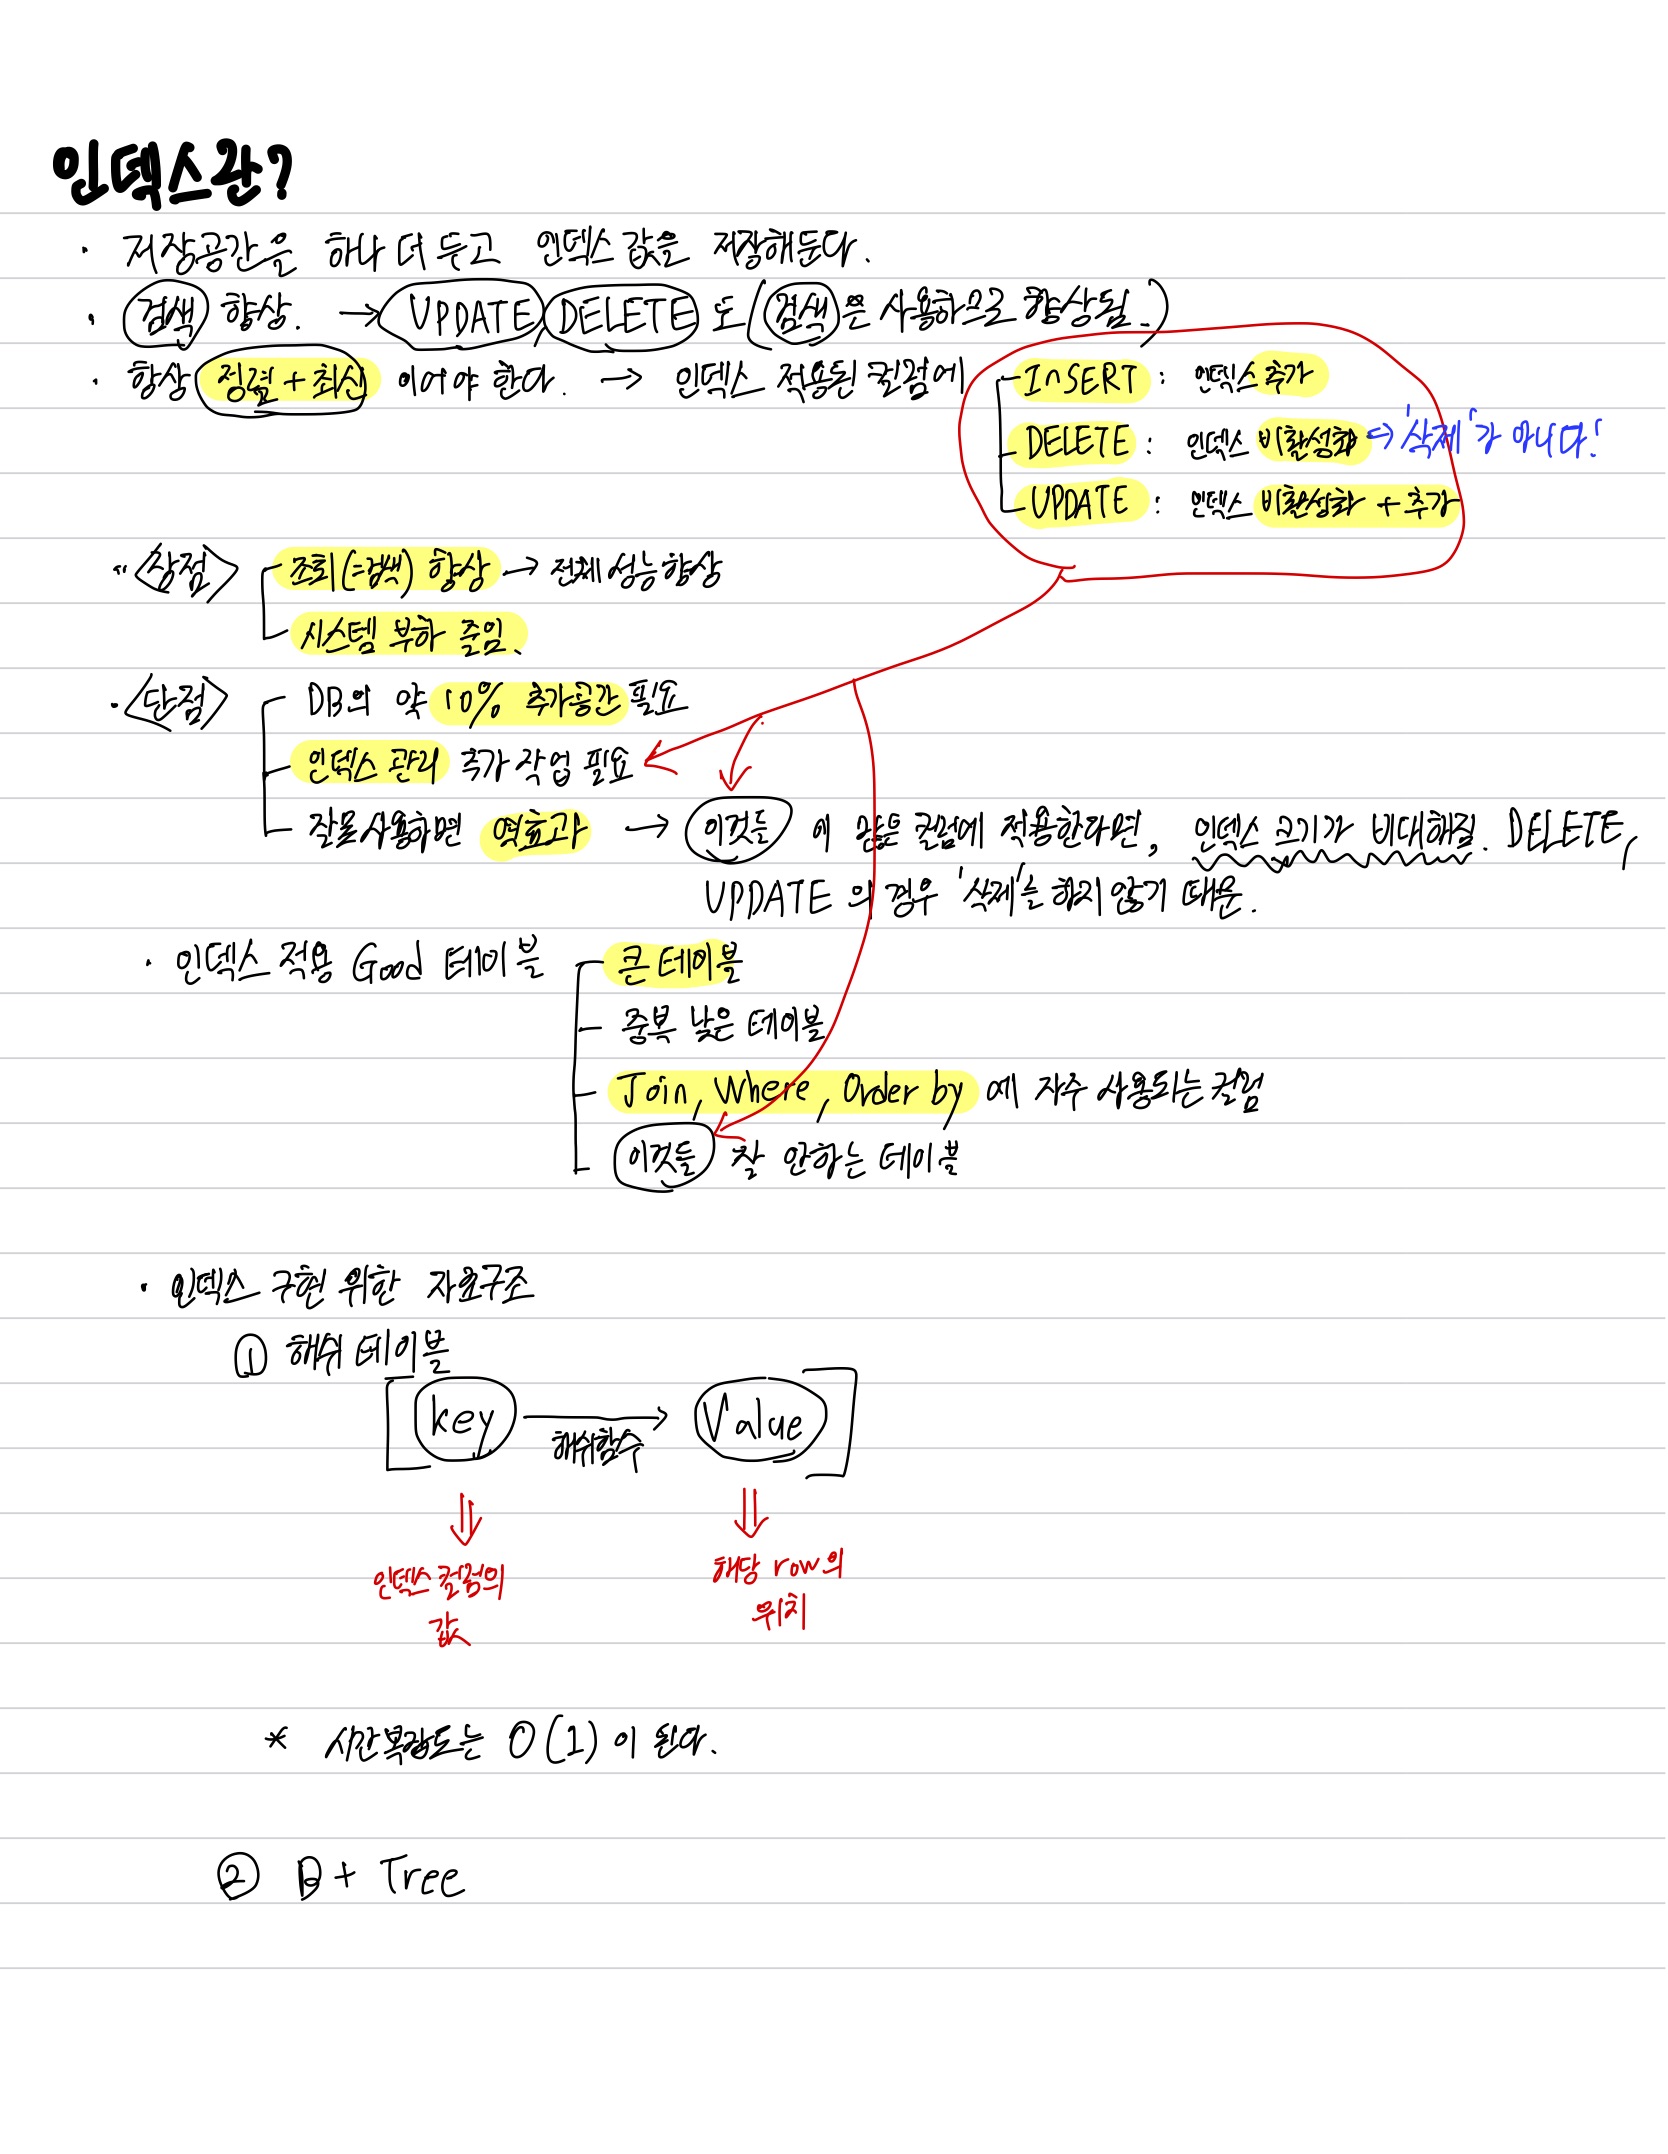 인덱스란?
· 저장공간을 하나 더 두고 인덱스 값을 저장해둔다.
· 검색 향상. → UPDATE, DELETE 도 (검색은 사용하므로 향상됨.)
· 항상 정렬 + 최신 이어야 한다. → 인덱스 적용된 컬럼에
INSERT : 인덱스 추가
DELETE : 인덱스 비활성화 → '삭제'가 아니다!
UPDATE : 인덱스 비활성화 + 추가
· <장점> 조회(=검색) 향상 → 전체 성능 향상
시스템 부하 줄임.
· <단점> DB의 약 10% 추가공간 필요
인덱스 관리 추가 작업 필요
잘못 사용하면 역효과 → 이것들 이 많은 컬럼에 적용한다면, 인덱스 크기가 비대해짐. DELETE,
UPDATE 의 경우 '삭제'를 하지 않기 때문.
· 인덱스 적용 Good 테이블
큰 테이블
중복 낮은 테이블
Join, Where, Order by 에 자주 사용되는 컬럼
이것들 잘 안하는 테이블
· 인덱스 구현 위한 자료구조
① 해쉬 테이블
[key → Value]
해쉬함수
인덱스 컬럼의 값
해당 row의 위치
* 시간복잡도는 O(1) 이 된다.
② B+ Tree